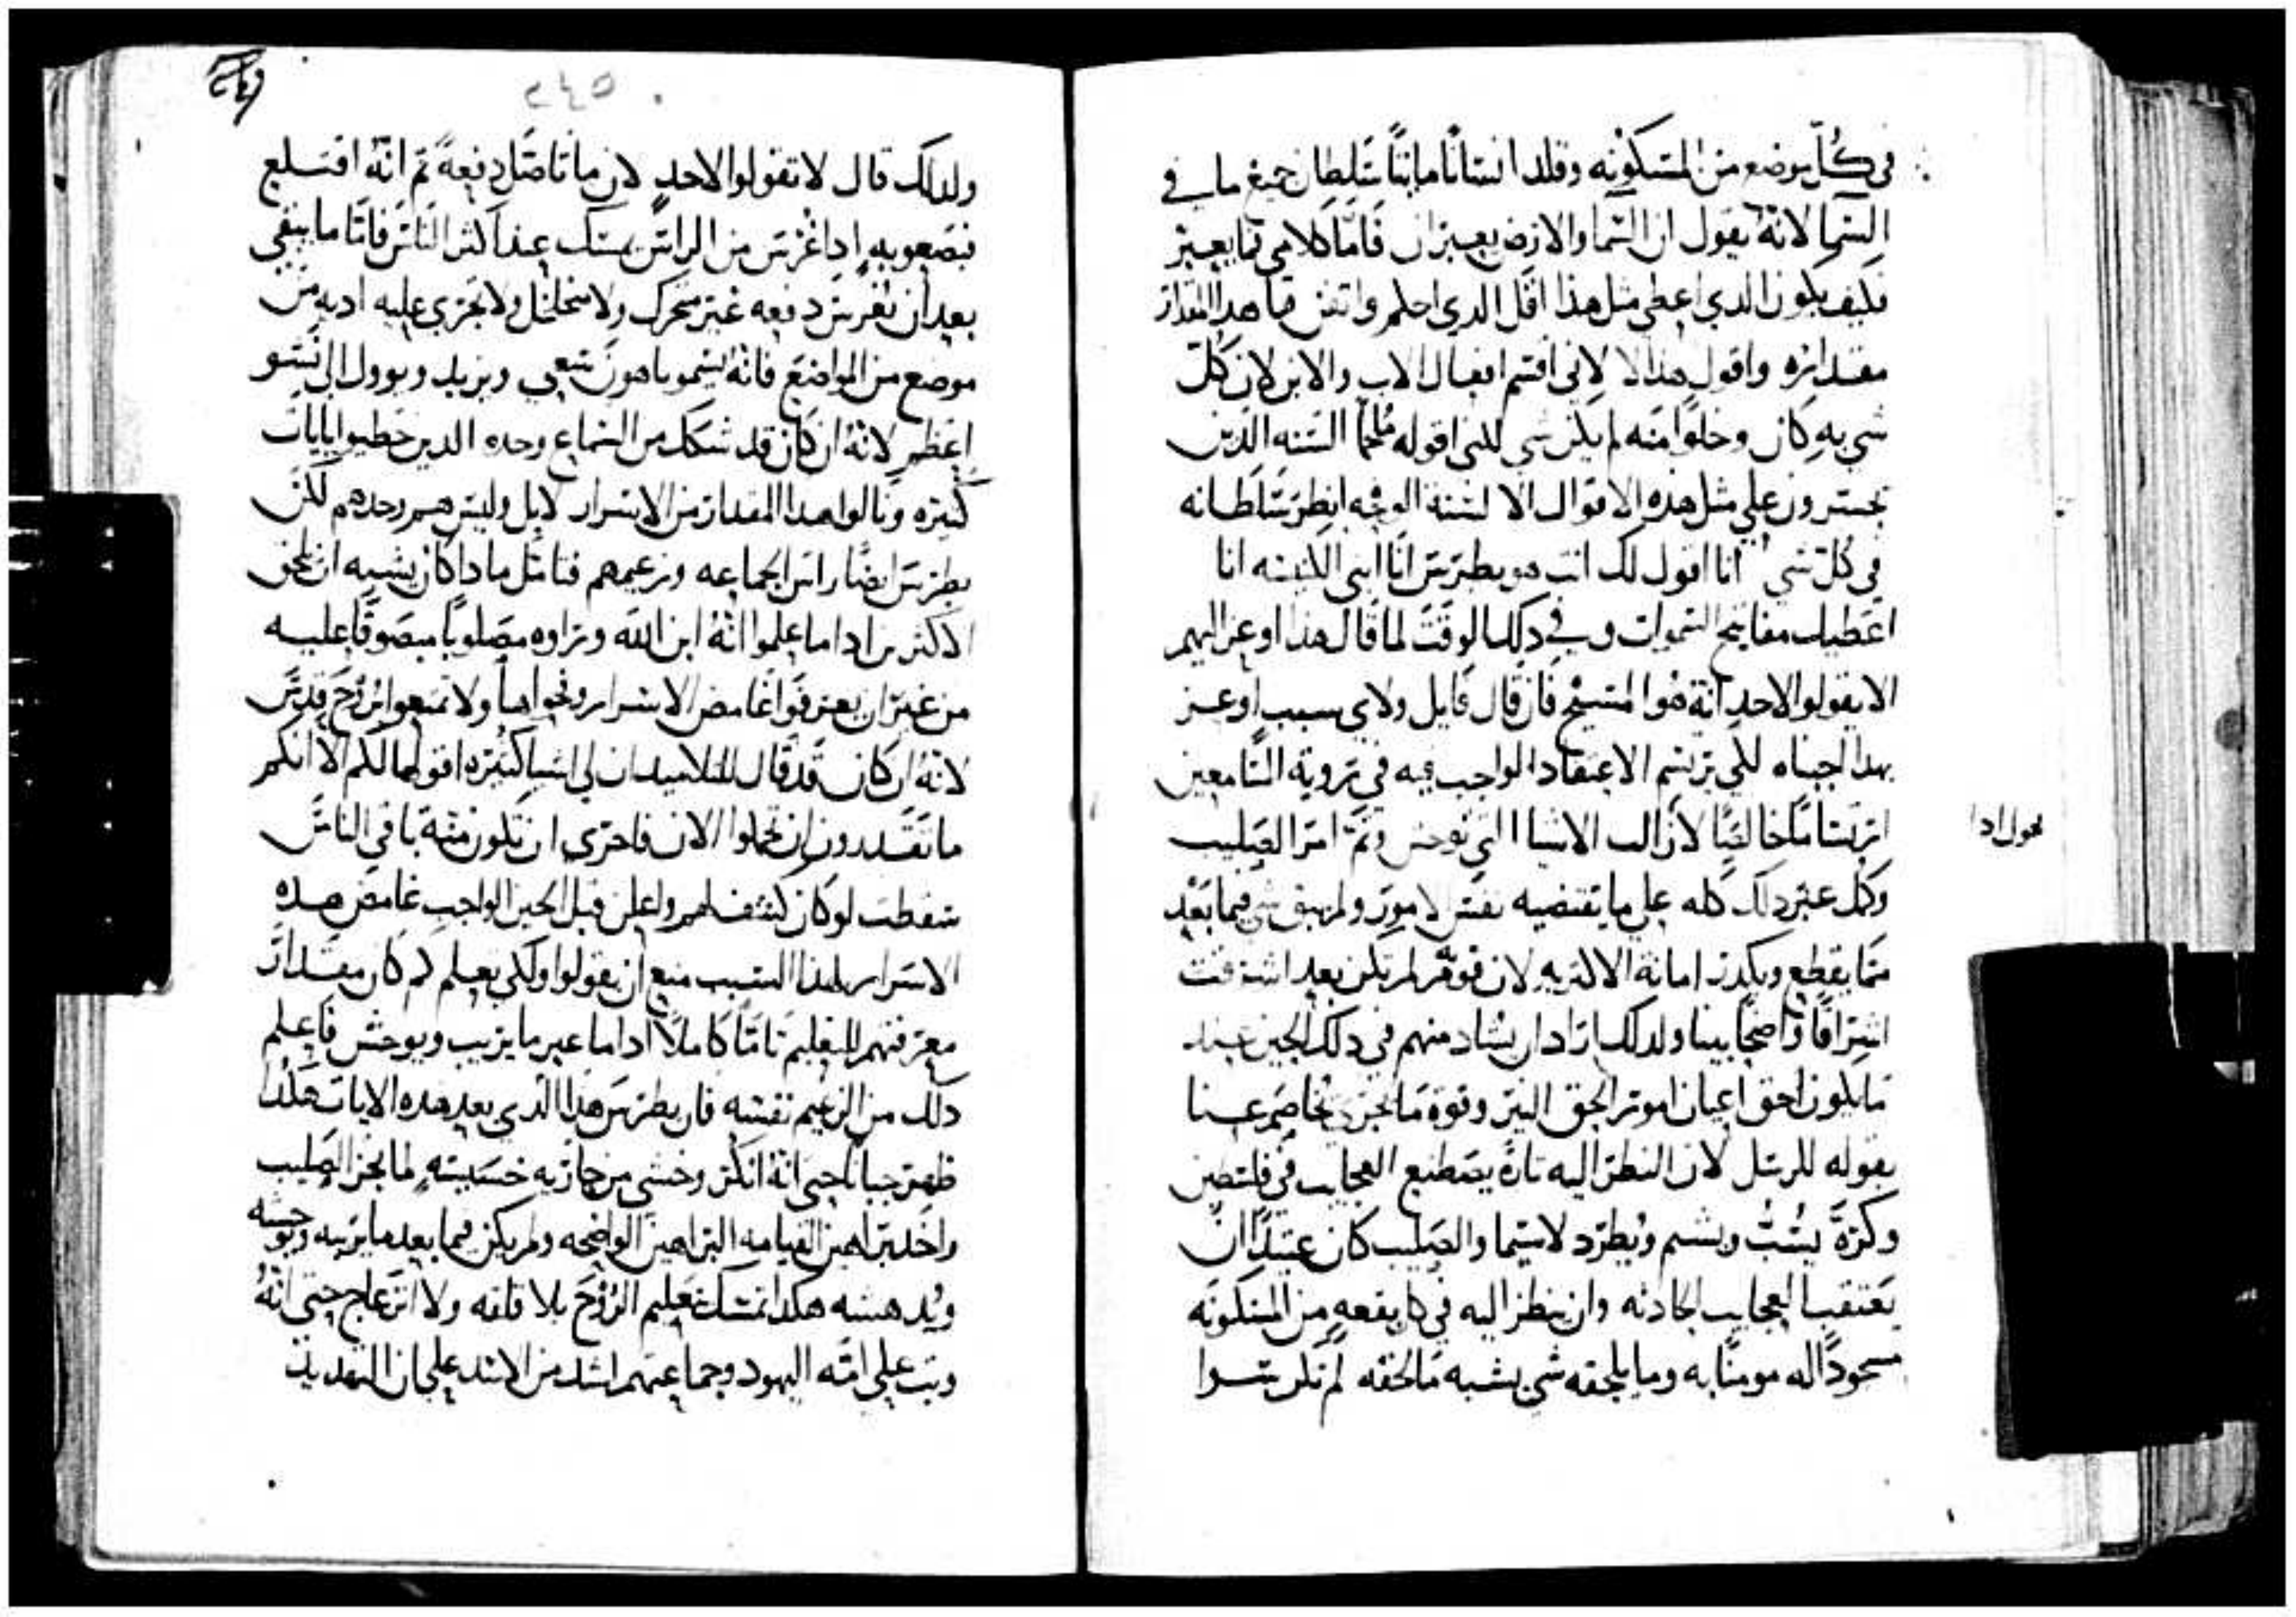 في كُلّ موضع من المسكونه وقلد انسانًا مايتًا سلطان جميع ما في
السما لانهُ يقول ان السما والارض يعبران فامّا كلامي فما يعبر
فكيف يكون الذي اعطى مثل هذا اقل الذي احكم واتقن ما هدا المقدار
مقداره واقول هدا لا لاني اقسم افعال الاب والابن لان كل
شي به كان وخلوًا منه لم يكن شي لكني اقوله ملجمًا السنه الذين
يجسرون على مثل هده الاقوال الالسنة الوقحه انظر سلطانه
في كل شي انا اقول لك انت هو بطرس انا ابني الكنيسه انا
اعطيك مفاتيح السموات وفي دلك الوقت لما قال هذا اوعز اليهم
الا يقولوا لاحد انهُ هُوا المسيح فان قال قايل ولاي سبب اوعز
بهدا اجبناه لكي يرتسم الاعتقاد الواجب فيه في تروية السامعين
ارتسامًا خالصًا لازالت الاشيا التي توحش وتم امر الصليب
وكمل غير دلك كله على ما يقتضيه نفس الامور ولم يبق شي فيما بعد
مما يقطع ويكدر امانة الاكثريه لان قوته لم تكن بعد اشرقت
اشراقًا واضحًا بينا ولدلك اراد ان يشاد منهم في دلك الحين عندما
ما يكون احق اعيان امور الحق البين وقوة ما يجري يخاصم عنا
بقوله للرسل لان النظر اليه تارةً يصطنع العجايب في فلسطين
وكرةً يسب ويشتم ويُطرد لاسيما والصليب كان عتيدًا ان
يعتقب العجايب الحادثه وان ينظر اليه في كل بقعه من المسكونه
مسجودًا له مومنًا به وما يلحقه شي يشبه ما لحقه لم تكن سوا
يحول ادا
٢٤٥
ولدلك قال لا تقولوا لاحد لان ما تاصّل دفعةً ثم انهُ اقتلع
فبصعوبه ادا غرس من الراس يمسك عند اكثر الناس فامّا ما يبقي
بعد ان يغرس دفعه غير متحرك ولا متخلخل ولا تجري عليه اديه من
موضع من المواضع فانهُ يسمو باهون سعي ويزيد ويوول الى نشو
اعظم لانهُ ان كان قد شكك من السماع وحده الدين حظيوا بايات
كثيره ونالوا هدا المقدار من الاسرار لا بل وليس هم وحدهم لكن
بطرس ايضًا راس الجماعه وزعيمهم فتامل مادا كان يشبه ان يلحق
الاكثرين ادا ما علموا انهُ ابن الله وتراوه مصلوبًا مبصوقًا عليه
من غير ان يعرفوا غامض الاسرار ونحواها ولا تمتعوا بروح قدس
لانهُ ان كان قد قال للتلاميد ان لي اشيا كثيره اقولها لكم الا انكم
ما تقدرون ان تحملوا الان فاحرى ان تكون منة باقي الناس
سقطت لو كان كشف لهم واعلن قبل الحين الواجب غامض هده
الاسرار لهذا السبب منع ان يقولوا ولكي يعلم كم كان مقدار
معرفتهم للتعليم تامًا كاملاً ادا ما عبر ما يريب ويوحش فاعلم
دلك من الزعيم نفسه فان بطرس هدا الذي بعد هده الايات هكدا
ظهر جبانًا حتى انهُ انكر وخشي من جاريه خسيسه لما نجز الصليب
واخد براهين القيامه البراهين الواضحه ولم يكن فيما بعد ما يريبه ويوحشه
ويُدهشه هكدا تمسك بتعليم الرُوح بلا قلقه ولا انزعاج حتى انهُ
وثب على امّه اليهود وجماعتهم اشد من الاسد على ان التهديد